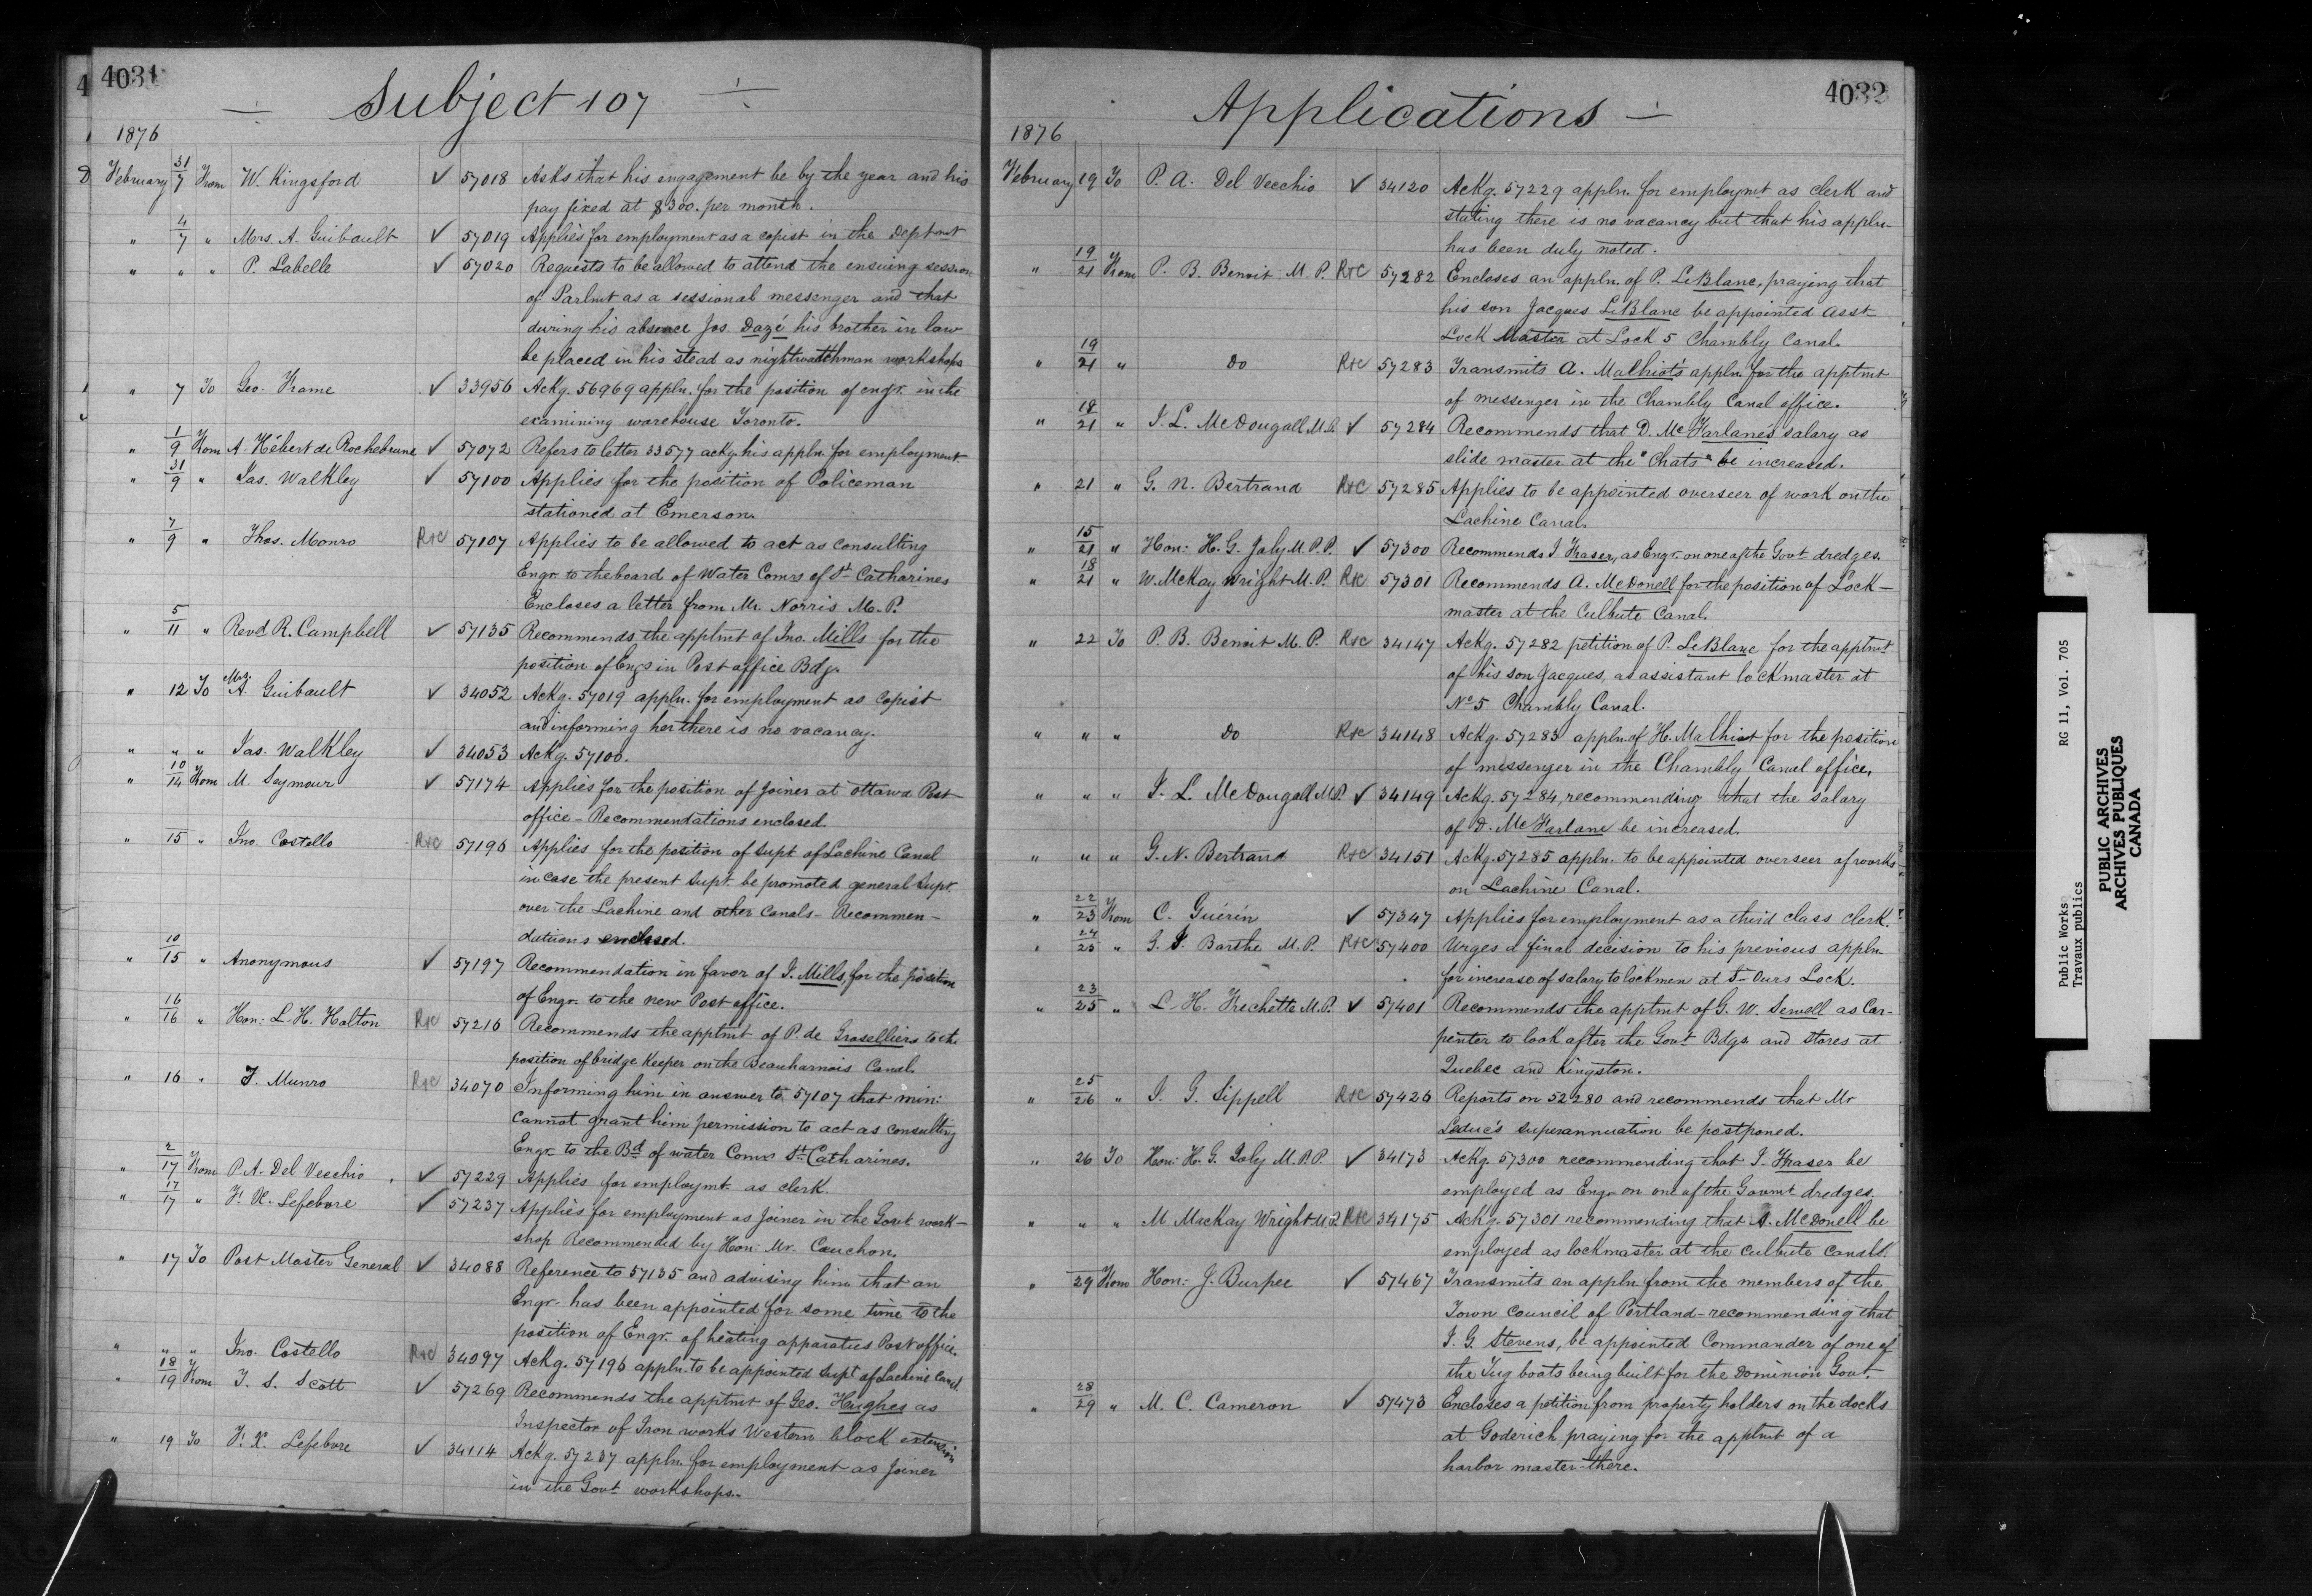 4031
4
Subject 107
1876
February 31/7 From W. Kingsford ✓ 57018 Asks that his engagement be by the year and his
pay fixed at $300. per month.
" 4/7 " Mrs. A. Guibault ✓ 57019 Applies for employment as a copist in the Deptmt
" " " P. Labelle ✓ 57020 Requests to be allowed to attend the ensuing session
of Parlmt as a sessional messenger and that
during his absence Jos. Dazé his brother in law
be placed in his stead as nightwatchman workshops
" 7 To Geo. Frame ✓ 33956 Ackg. 56969 appln. for the position of engr. in the
examining warehouse Toronto.
" 1/9 From A. Hébert de Rochebrune ✓ 57072 Refers to letter 33577 ackg. his appln. for employment.
" 31/9 " Jas. Walkley ✓ 57100 Applies for the position of Policeman
stationed at Emerson.
" 7/9 " Thos. Monro R+C 57107 Applies to be allowed to act as consulting
Engr. to the board of Water Comrs of St. Catharines
Encloses a letter from Mr. Norris M.P.
" 5/11 " Revd. R. Campbell ✓ 57135 Recommends the apptmt of Jno. Mills for the
position of Engr in Post office Bdg.
" 12 To Mrs. A. Guibault ✓ 34052 Ackg. 57019 appln. for employment as copist
and informing her there is no vacancy.
" " " Jas. Walkley ✓ 34053 Ackg. 57100.
" 10/14 From M. Seymour ✓ 57174 Applies for the position of Joiner at Ottawa Post
office - Recommendations enclosed.
" 15 " Jno. Costello R+C 57196 Applies for the position of Supt of Lachine Canal
in case the present Supt. be promoted general Supt.
over the Lachine and other Canals - Recommen-
dations enclosed.
" 10/15 " Anonymous ✓ 57197 Recommendation in favor of J. Mills, for the position
of Engr. to the new Post office.
" 16/16 " Hon: L. H. Holton R+C 57216 Recommends the apptmt of P. de Groselliers to the
position of bridge keeper on the Beauharnois Canal.
" 16 " T. Munro R+C 34070 Informing him in answer to 57107 that min:
cannot grant him permission to act as consulting
Engr. to the Bd. of water Comrs St. Catharines.
" 2/17 From P. A. Del Vecchio ✓ 57229 Applies for employmt. as clerk.
" 17/17 " F. X. Lefebvre ✓ 57237 Applies for employment as Joiner in the Govt. work-
shop Recommended by Hon: Mr. Cauchon.
" 17 To Post Master General ✓ 34088 Reference to 57135 and advising him that an
Engr. has been appointed for some time to the
position of Engr. of heating apparatus Post office.
" " " Jno. Costello R+C 34097 Ackg. 57196 appln. to be appointed Supt. of Lachine Canal.
" 18/19 From T. S. Scott ✓ 57269 Recommends the apptmt of Geo. Hughes as
Inspector of Iron works Western block extension
" 19 To F. X. Lefebvre ✓ 34114 Ackg. 57237 appln. for employment as Joiner
in the Govt workshops.
4032
Applications
1876
February 19 To P. A. Del Vecchio ✓ 34120 Ackg. 57229 appln. for employmt as clerk and
stating there is no vacancy but that his appln-
has been duly noted.
" 19/21 From P. B. Benoit M.P. R+C 57282 Encloses an appln. of P. LeBlanc, praying that
his son Jacques LeBlanc be appointed Asst
Lock Master at Lock 5 Chambly Canal.
" 19/21 " Do R+C 57283 Transmits A. Malhiot's appln. for the apptmt
of messenger in the Chambly Canal office.
" 18/21 " J. L. McDougall M.P. ✓ 57284 Recommends that D. McFarlane's salary as
slide master at the "Chats" be increased.
" 21 " G. N. Bertrand R+C 57285 Applies to be appointed overseer of work on the
Lachine Canal.
" 15/21 " Hon: H. G. Joly M.P.P. ✓ 57300 Recommends J. Fraser, as Engr. on one of the Govt dredges.
" 18/21 " W. McKay Wright M.P. R+C 57301 Recommends A. McDonell for the position of Lock-
master at the Culbute Canal.
" 22 To P. B. Benoit M.P. R+C 34147 Ackg. 57282 petition of P. LeBlanc for the apptmt
of his son Jacques, as assistant lockmaster at
No 5 Chambly Canal.
" " " Do R+C 34148 Ackg. 57283 appln. of H. Malhiot for the position
of messenger in the Chambly Canal office.
" " " J. L. McDougall M.P. ✓ 34149 Ackg. 57284, recommending that the salary
of D. McFarlane be increased.
" " " G. N. Bertrand R+C 34151 Ackg. 57285 appln. to be appointed overseer of works
on Lachine Canal.
" 22/23 From C. Guérin ✓ 57347 Applies for employment as a third class clerk.
" 24/25 " G. I. Barthe M.P. R+C 57400 Urges a final decision to his previous appln.
for increase of salary to lockmen at St Ours Lock.
" 23/25 " L. H. Frechette M.P. ✓ 57401 Recommends the apptmt of G. W. Sewell as Car-
penter to look after the Govt Bdgs and stores at
Quebec and Kingston.
" 25/26 " J. G. Sippell R+C 57426 Reports on 52280 and recommends that Mr
Leduc's superannuation be postponed.
" 26 To Hon: H. G. Joly M.P.P. ✓ 34173 Ackg. 57300 recommending that J. Fraser be
employed as Engr. on one of the Govmt dredges.
" " " M MacKay Wright M.P. R+C 34175 Ackg. 57301 recommending that A. McDonell be
employed as lockmaster at the Culbute Canals.
" 29 From Hon: J. Burpee ✓ 57467 Transmits an appln from the members of the
Town Council of Portland - recommending that
J. G. Stevens, be appointed Commander of one of
the Tug boats being built for the Dominion Govt.
" 28/29 " M. C. Cameron ✓ 57473 Encloses a petition from property holders on the docks
at Goderich praying for the apptmt of a
harbor master there.
Public Works RG 11, Vol. 705
Travaux publics
PUBLIC ARCHIVES
ARCHIVES PUBLIQUES
CANADA